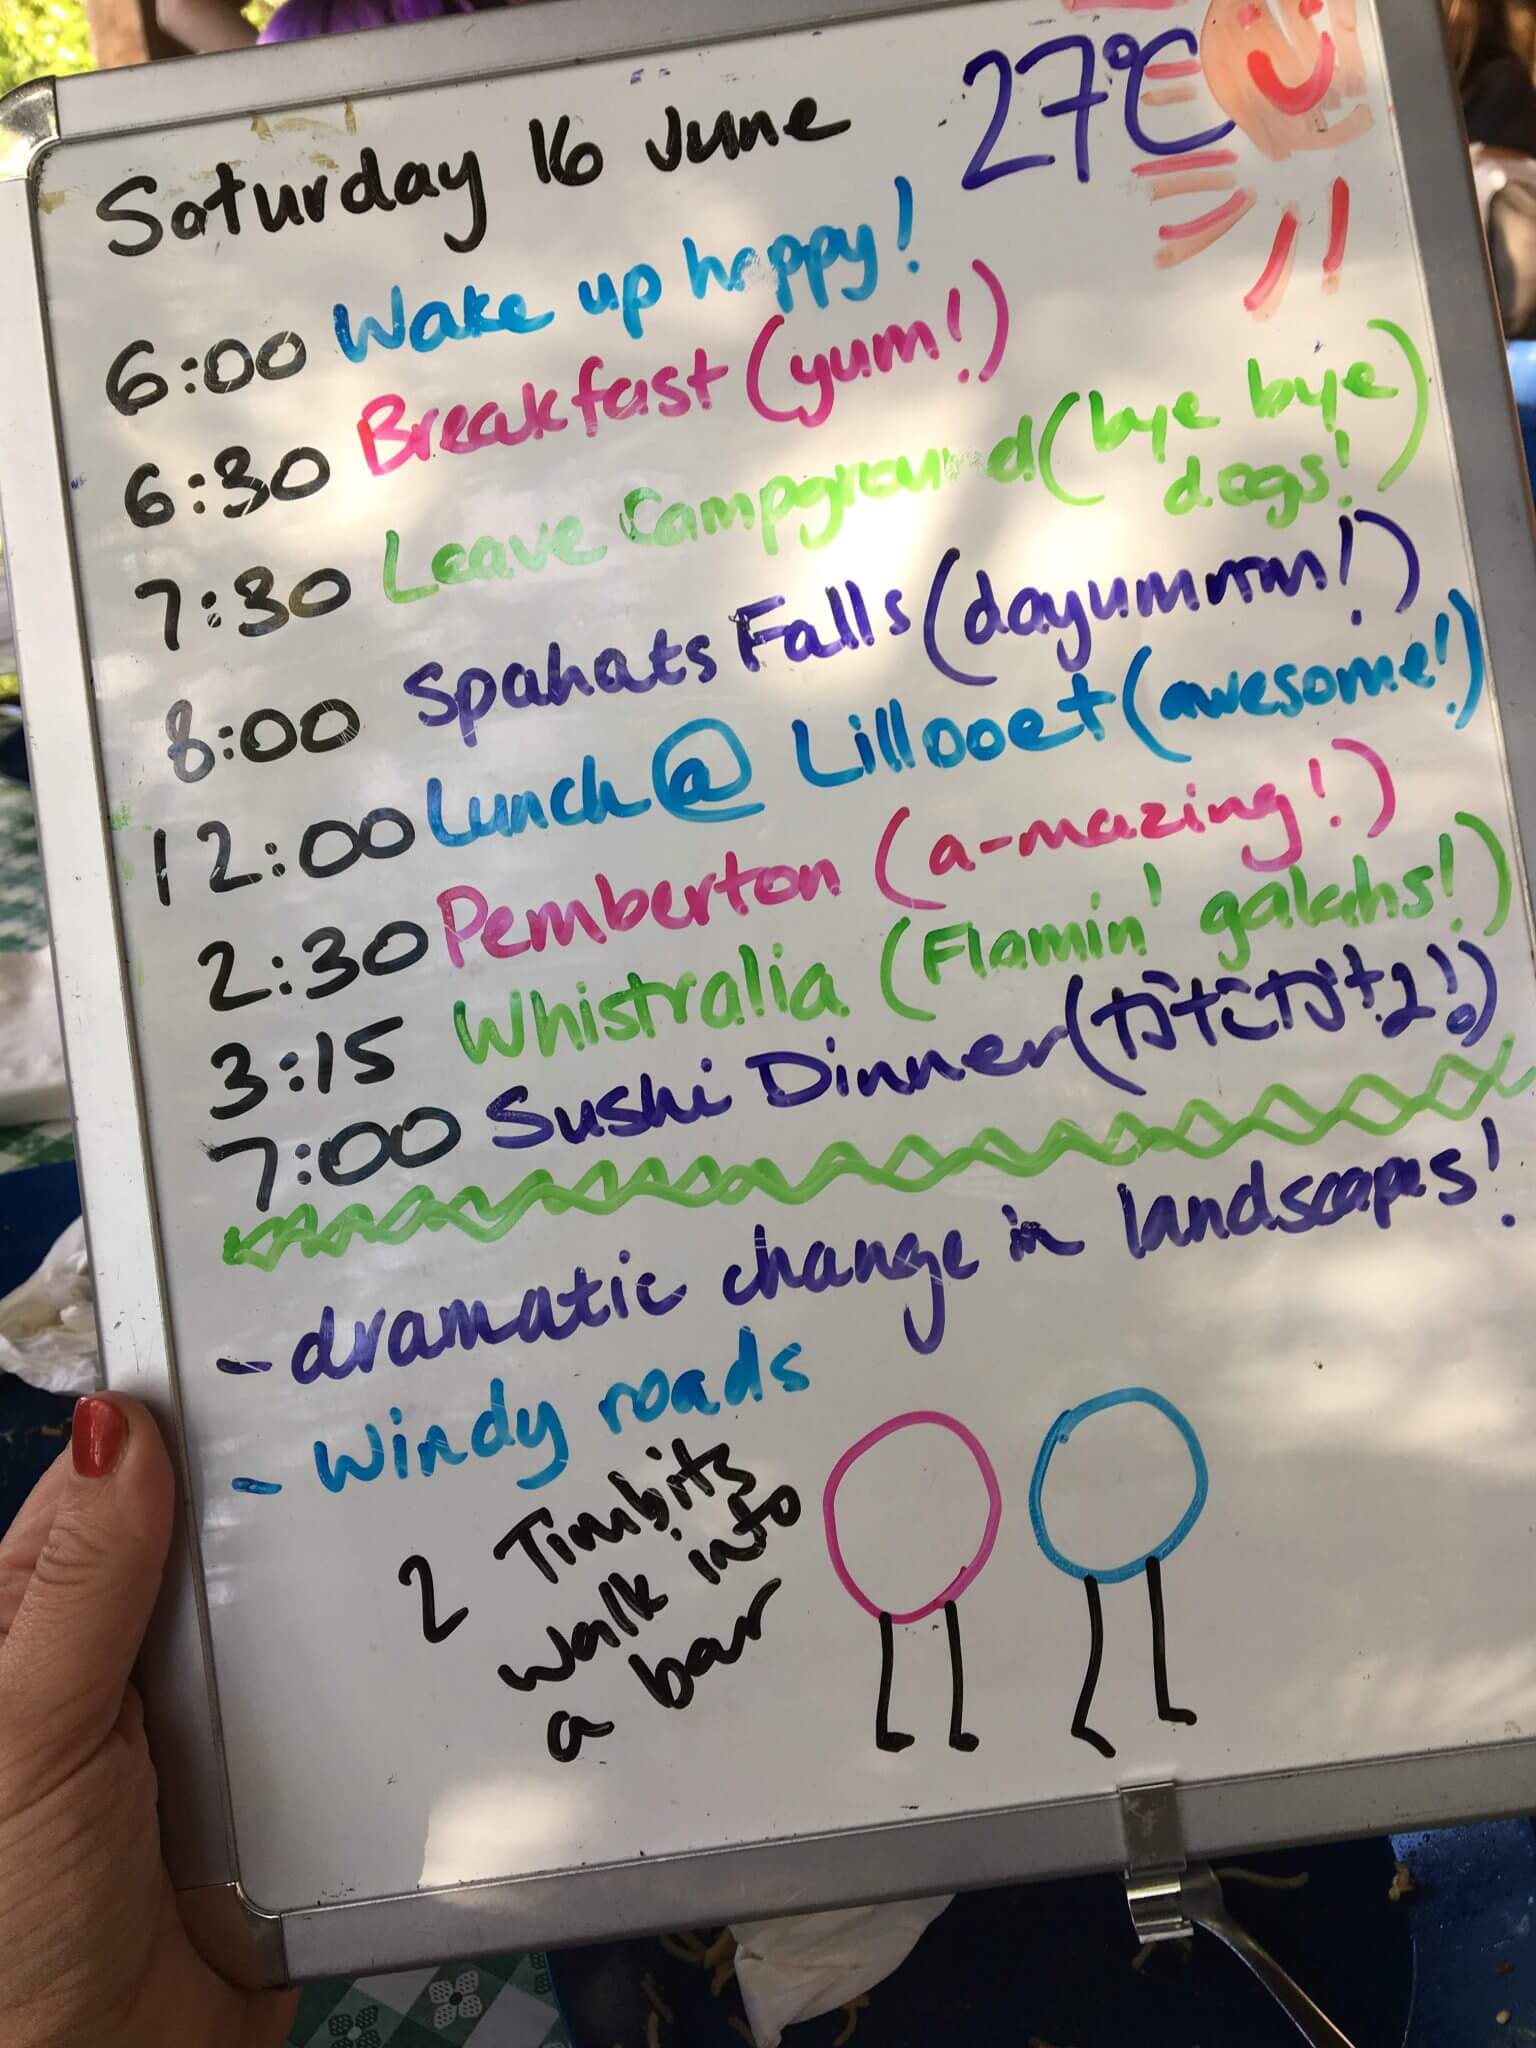 Saturday 16 June 27°C
6:00 Wake up happy!
6:30 Breakfast (yum!)
7:30 Leave Campground (bye bye
dogs!)
8:00 Spahats Falls (dayummm!)
12:00 Lunch @ Lillooet (awesome!)
2:30 Pemberton (a-mazing!)
3:15 Whistralia (Flamin' galahs!)
7:00 Sushi Dinner
- dramatic change in landscapes!
- windy roads
2 Timbits
walk into
a bar